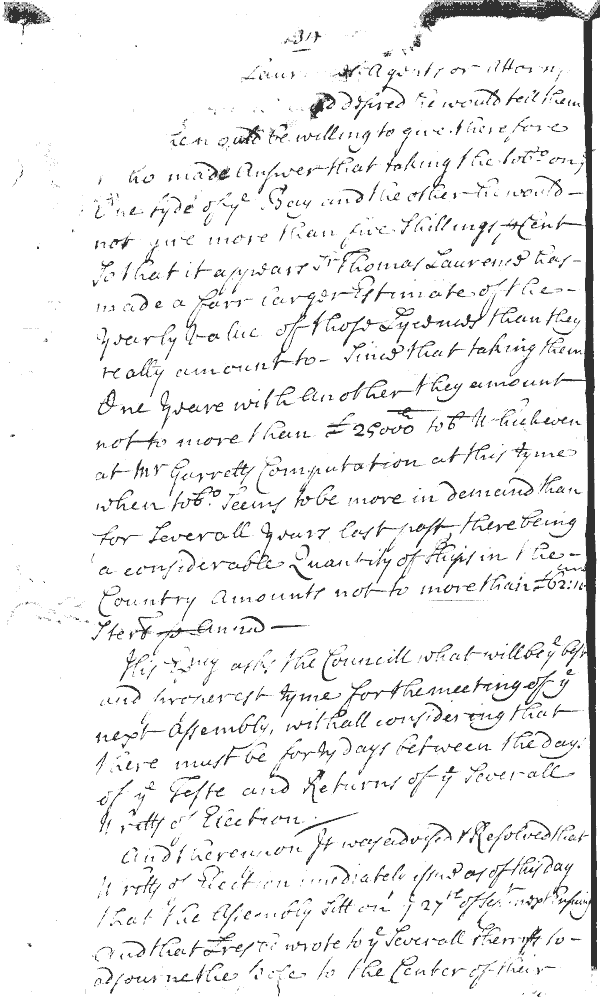 31
Agents or Attorn
and desired he would tell them
he would be willing to give therefore
who made Answer that taking the tobo. on
One syde of ye. Bay and the other he would
not give more than five Shillings p Cent
So that it appears Sr. Thomas Laurence has
made a farr larger Estimate of the
yearly Value of those Lycences than they
really amount to Since that taking them
One Yeare with Another they amount
not to more than 25000 tob. Which even
at Mr Garretts Computation at this tyme
when tobo. Seems to be more in demand than
for Severall Years last past, there being
a considerable Quantity of Ships in the
Country Amounts not to more than £62:10
Sterl p Annū
His Exncy asks the Councill what will be ye best
and properest tyme for the meeting of ye
next Assembly, withall considering that
there must be forty days between the day
of ye Teste and Returns of ye Severall
Writts of Election
And thereupon It was advised & Resolved that
Writts of Election imediately issue as of this day
that the Assembly Sitt on ye 27th of next Ensuing
And that Lres be wrote to ye Severall Sherriffs to
adjourne the to the Center of their